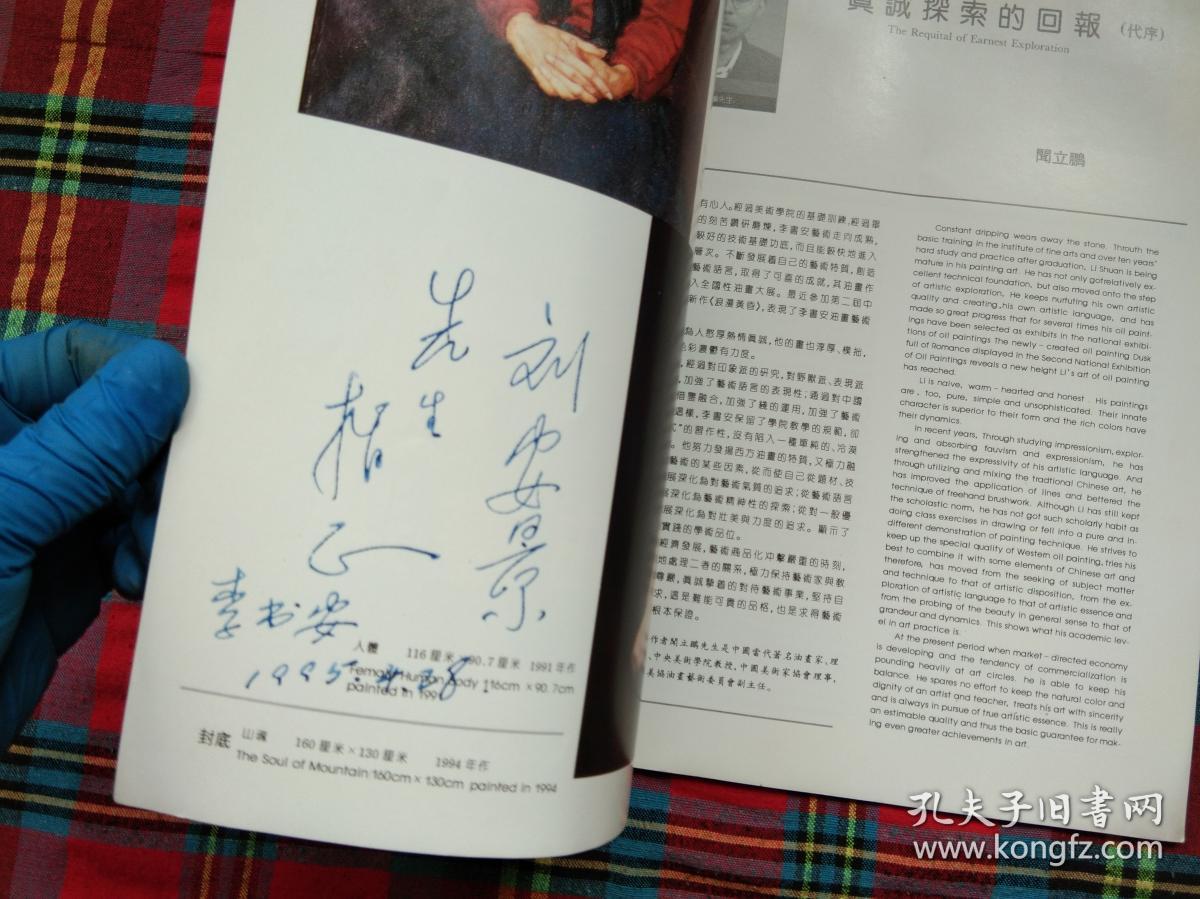 先生
指正
李书安
人體 116厘米 90.7厘米 1991年作
Female Human Body 116cm × 90.7cm
painted in 199
封底 山魂 160厘米×130厘米 1994年作
The Soul of Mountain 160cm × 130cm painted in 1994
眞誠探索的回報(代序)
The Requital of Earnest Exploration
聞立鵬
有心人。經過美術學院的基礎訓練,經過畢
的刻苦鑽研磨煉,李書安藝術走向成熟,
較好的技術基礎功底,而且能較快地進入
層次。不斷發展着自己的藝術特質,創造
藝術語言,取得了可喜的成就,其油畫作
入全國性油畫大展。最近參加第二屆中
新作《浪漫黃昏》,表現了李書安油畫藝術
為人憨厚熱情眞誠,他的畫也渾厚、樸拙,
色彩濃鬱有力度。
,經過對印象派的研究,對野獸派、表現派
,加強了藝術語言的表現性;通過對中國
借鑒融合,加強了綫的運用,加強了藝術
這樣,李書安保留了學院教學的規範,卻
式”的習作性,沒有陷入一種單純的、冷漠
。他努力發揚西方油畫的特質,又極力融
藝術的某些因素,從而使自己從題材、技
展深化為對藝術氣質的追求;從藝術語言
展深化為藝術精神性的探索;從對一般優
展深化為對壯美與力度的追求。顯示了
實踐的學術品位。
經濟發展,藝術商品化冲擊嚴重的時刻,
地處理二者的關系,極力保持藝術家與教
尊嚴,眞誠摯着的對待藝術事業,堅持自
求,這是難能可貴的品格,也是求得藝術
根本保證。
作者聞立鵬先生是中國當代著名油畫家、理
、中央美術學院教授,中國美術家協會理事,
美協油畫藝術委員會副主任。
Constant dripping wears away the stone. Throuth the
basic training in the institute of fine arts and over ten years'
hard study and practice after graduation, Li Shuan is being
mature in his painting art. He has not only gotrelatively ex-
cellent technical foundation, but also moved onto the step
of artistic exploration. He keeps nurturing his own artistic
quality and creating,his own artistic language, and has
made so great progress that for several times his oil paint-
ings have been selected as exhibits in the national exhibi-
tions of oil paintings The newly - created oil painting Dusk
full of Romance displayed in the Second National Exhibition
of Oil Paintings reveals a new height Li's art of oil painting
has reached.
Li is naive, warm - hearted and honest . His paintings
are , too, pure, simple and unsophisticated. Their innate
character is superior to their form and the rich colors have
their dynamics.
In recent years, Through studying impressionism, explor-
ing and absorbing fauvism and expressionism, he has
strengthened the expressivity of his artistic language. And
through utilizing and mixing the traditional Chinese art, he
has improved the application of lines and bettered the
technique of freehand brushwork. Although Li has still kept
the scholastic norm, he has not got such scholarly habit as
doing class exercises in drawing or fell into a pure and in-
different demonstration of painting technique. He strives to
keep up the special quality of Western oil painting, tries his
best to combine it with some elements of Chinese art and
therefore, has moved from the seeking of subject matter
and technique to that of artistic disposition, from the ex-
ploration of artistic language to that of artistic essence and
from the probing of the beauty in general sense to that of
grandeur and dynamics. This shows what his academic lev-
el in art practice is.
At the present period when market - directed economy
is developing and the tendency of commercialization is
pounding heavily at art circles. he is able to keep his
balance. He spares no effort to keep the natural color and
dignity of an artist and teacher, treats his art with sincerity
and is always in pursue of true artistic essence. This is really
an estimable quality and thus the basic guarantee for mak-
ing even greater achievements in art.
孔夫子旧書网
www.kongfz.com